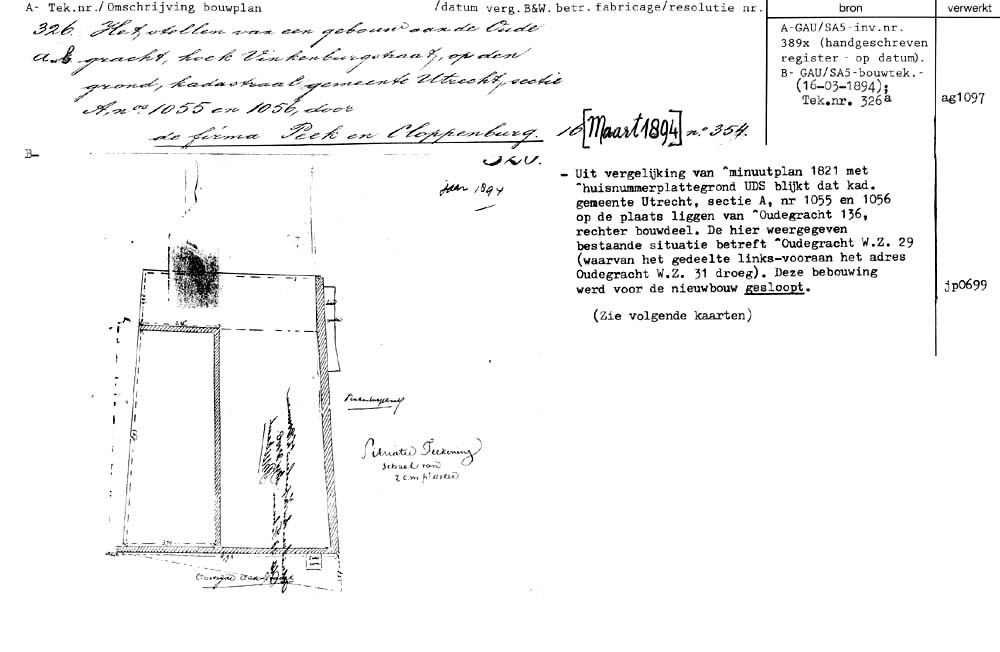 A- Tek.nr./Omschrijving bouwplan /datum verg.B&W. betr. fabricage/resolutie nr. bron verwerkt
326. Het stellen van een gebouw aan de Oude
a.b. gracht, hoek Vinkenburgstraat, op den
grond, kadastraal gemeente Utrecht, sectie
A, nos 1055 en 1056, door
de firma Peek en Cloppenburg. 16 [Maart 1894] no. 354.
A-GAU/SA5-inv.nr.
389x (handgeschreven
register - op datum).
B- GAU/SA5-bouwtek.-
(16-03-1894);
Tek.nr. 326a
ag1097
B-
– Uit vergelijking van ^minuutplan 1821 met
^huisnummerplattegrond UDS blijkt dat kad.
gemeente Utrecht, sectie A, nr 1055 en 1056
op de plaats liggen van ^Oudegracht 136,
rechter bouwdeel. De hier weergegeven
bestaande situatie betreft ^Oudegracht W.Z. 29
(waarvan het gedeelte links-vooraan het adres
Oudegracht W.Z. 31 droeg). Deze bebouwing
werd voor de nieuwbouw gesloopt.
(Zie volgende kaarten)
jp0699
1894
Situatie Teekening
Schaal van
2 c.m. pr meter